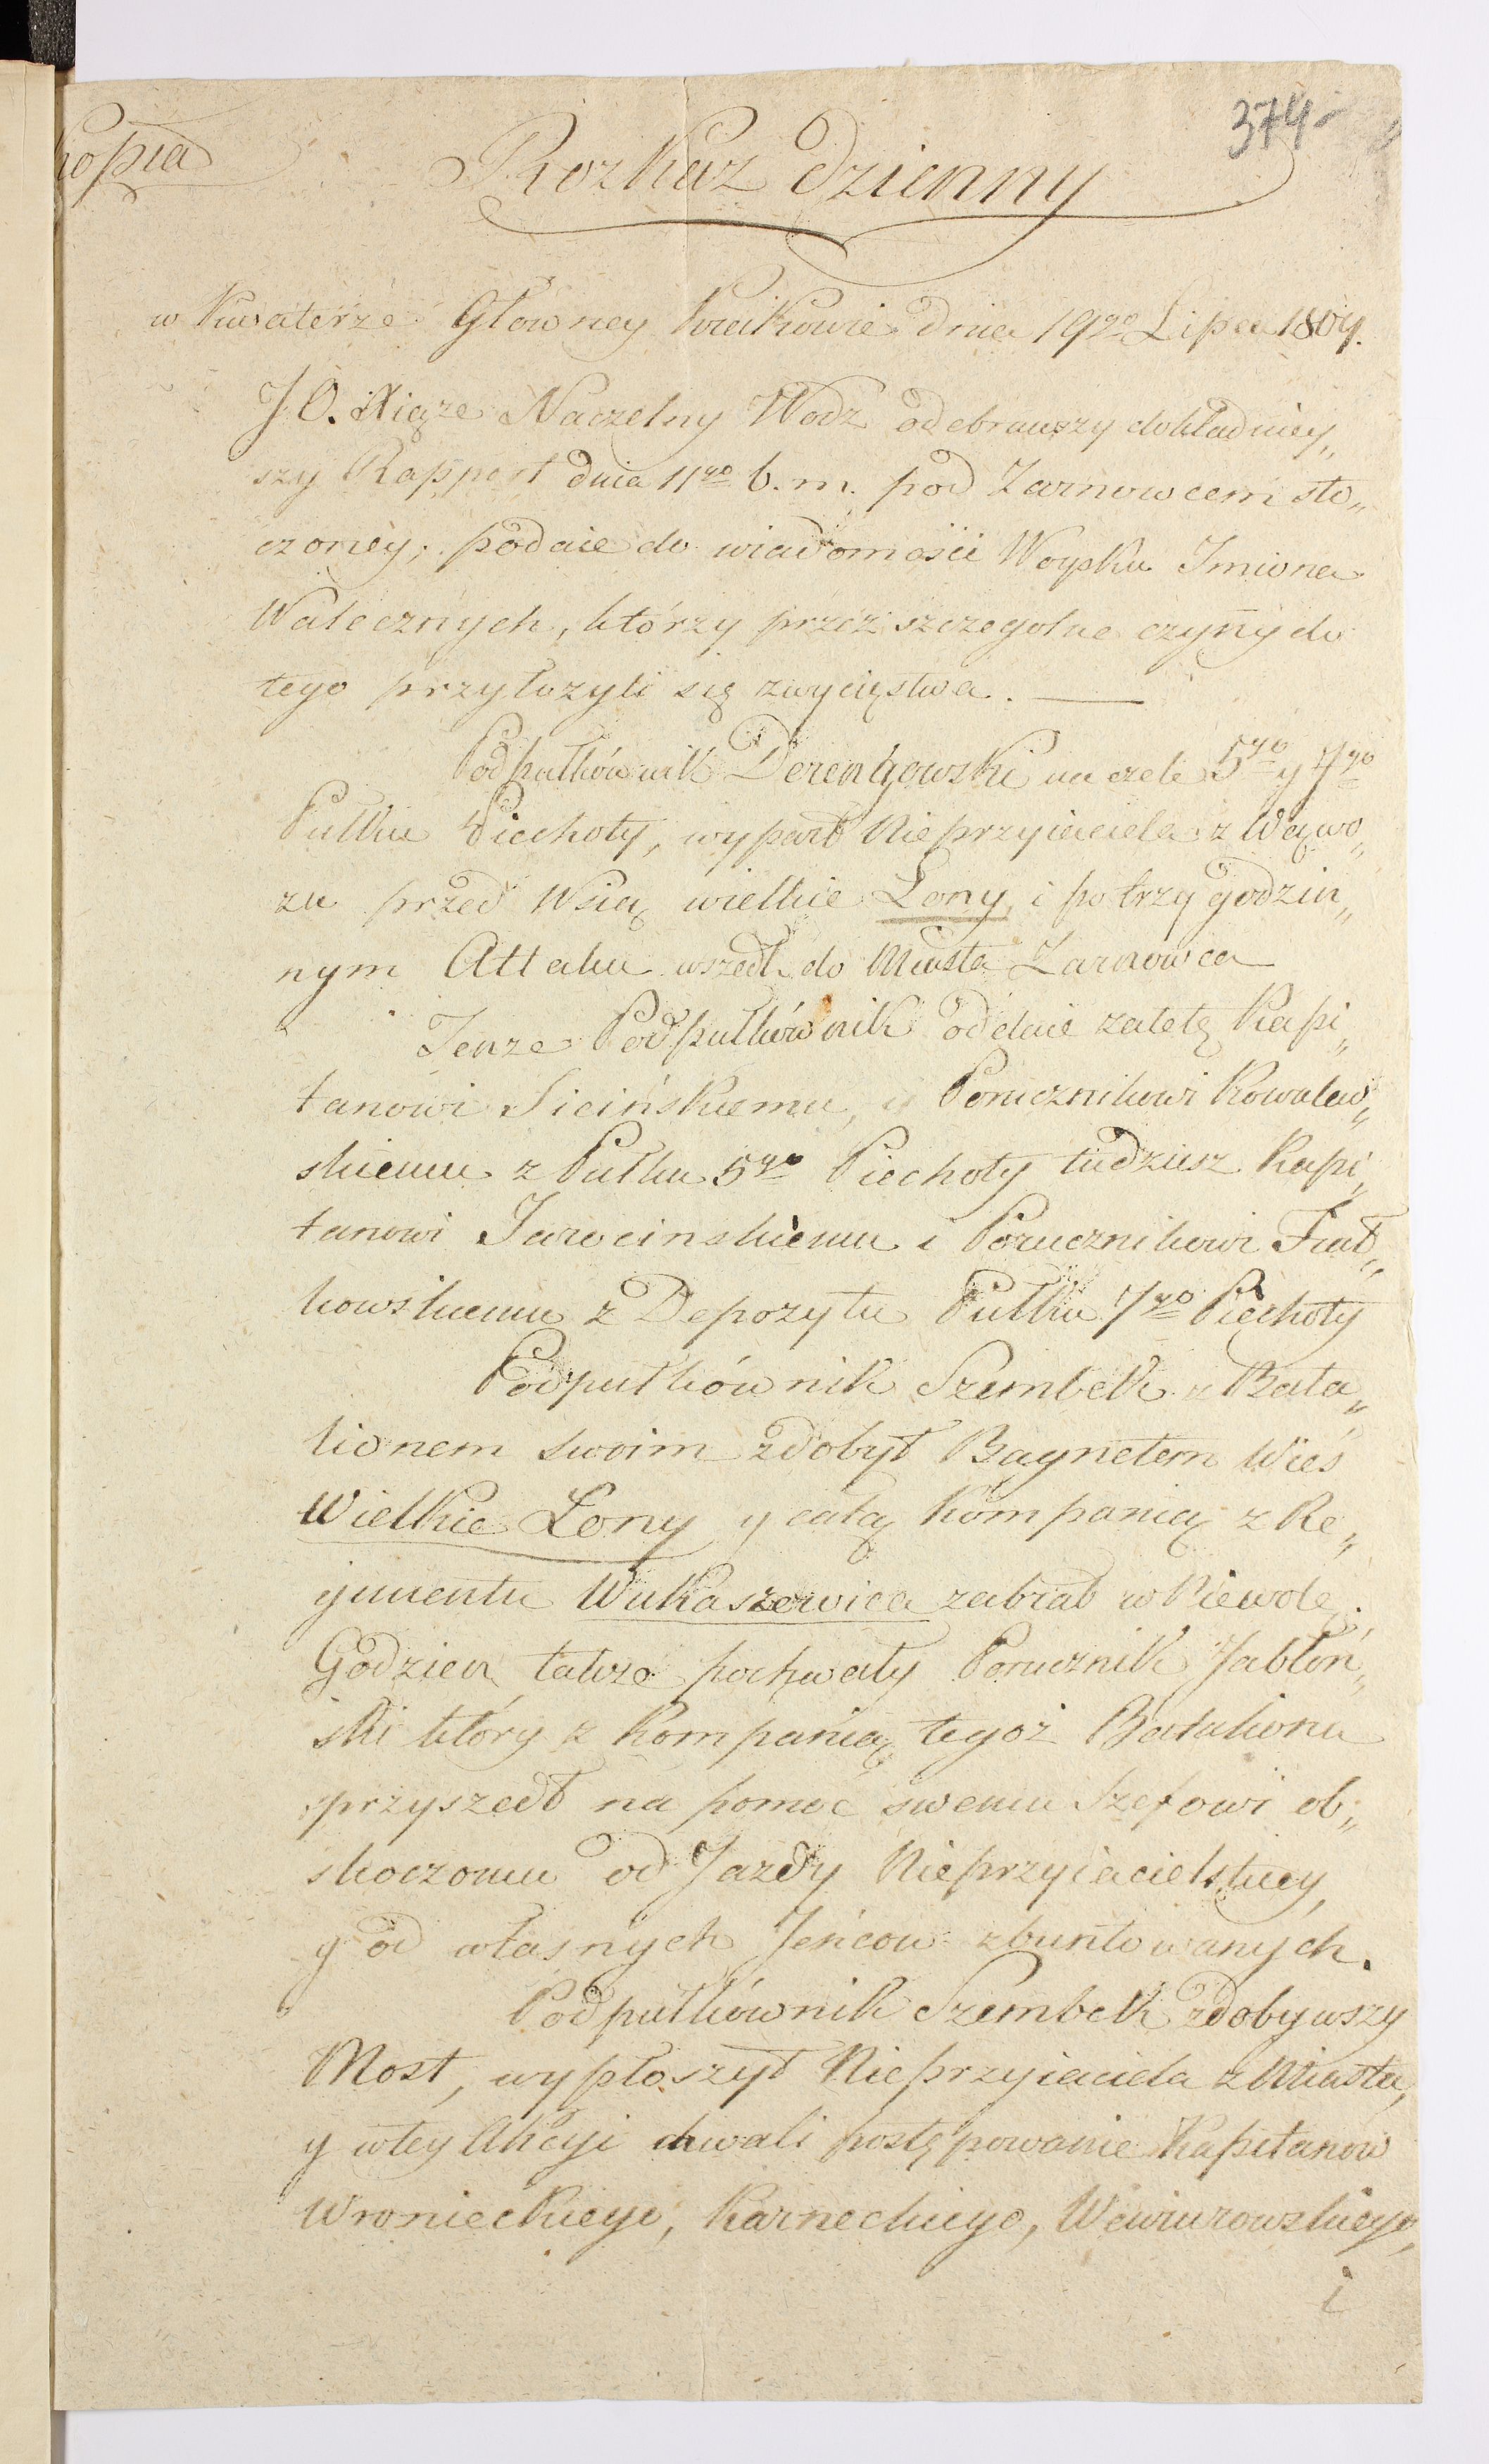 374
Kopia
Rozkaz dzienny
w Kwaterze Głowney Krakowie dnia 19go Lipca 1809.
J. O. Xiąże Naczelny Wodz odebrawszy dokładniey„
szy Rapport dnia 11go b. m. pod Zarnowcem sto„
czoney; podaie do wiadomości Woyska Imiona
Walecznych, którzy przez szczegolne czyny do
tego przyłozyli się zwycięstwa. —
Podpułkównik Derengowski na czele 5go y 7go
Pułku Piechoty, wyparł Nieprzyiaciela z Wąwo„
zu przed Wsią wielkie Lony, i po trzy godzin„
nym Attaku wszedł do Miasta Zarnowca
Tenze Podpułkównik oddaie zaletę Kapi„
tanowi Sicińskiemu, y Porucznikowi Kowalew„
skiemu z Pułku 5go Piechoty tudziesz Kapi„
tanowi Jarocinskiemu i Porucznikowi Fiał„
kowskiemu z Depozytu Pułku 7go Piechoty
Podpułkównik Szembek z Bata„
lionem swoim zdobył Bagnetem Wieś
Wielkie Lony y całą Kompanią z Re„
gimentu Wukaszewica zabrał w Niewolę;
Godzien takze pochwały Porucznik Jabłoń„
ski który z Kompanią tegoż Batalionu
przyszedł na pomoc swemu Szefowi ob„
skoczonu od Jazdy Nieprzyiacielskiey,
y od własnych Jeńcow zbuntowanych.
Podpułkównik Szembek zdobywszy
Most, wypłoszył Nieprzyiaciela z Miasta,
y w tey Akcyi chwali postępowanie Kapitanow
Wronieckiego, Karneckiego, Wewiurowskiego,
i